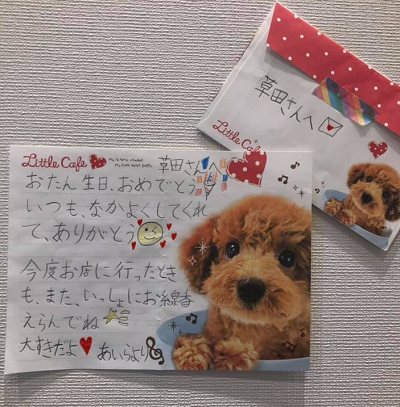 草田さんへ
Little Cafe
Little Cafe
草田さん
おたん生日、おめでとう
いつも、なかよくしてくれ
て、ありがとう
今度お店に行ったとき
も、また、いっしょにお線香
えらんでね
大すきだよ
あいらより